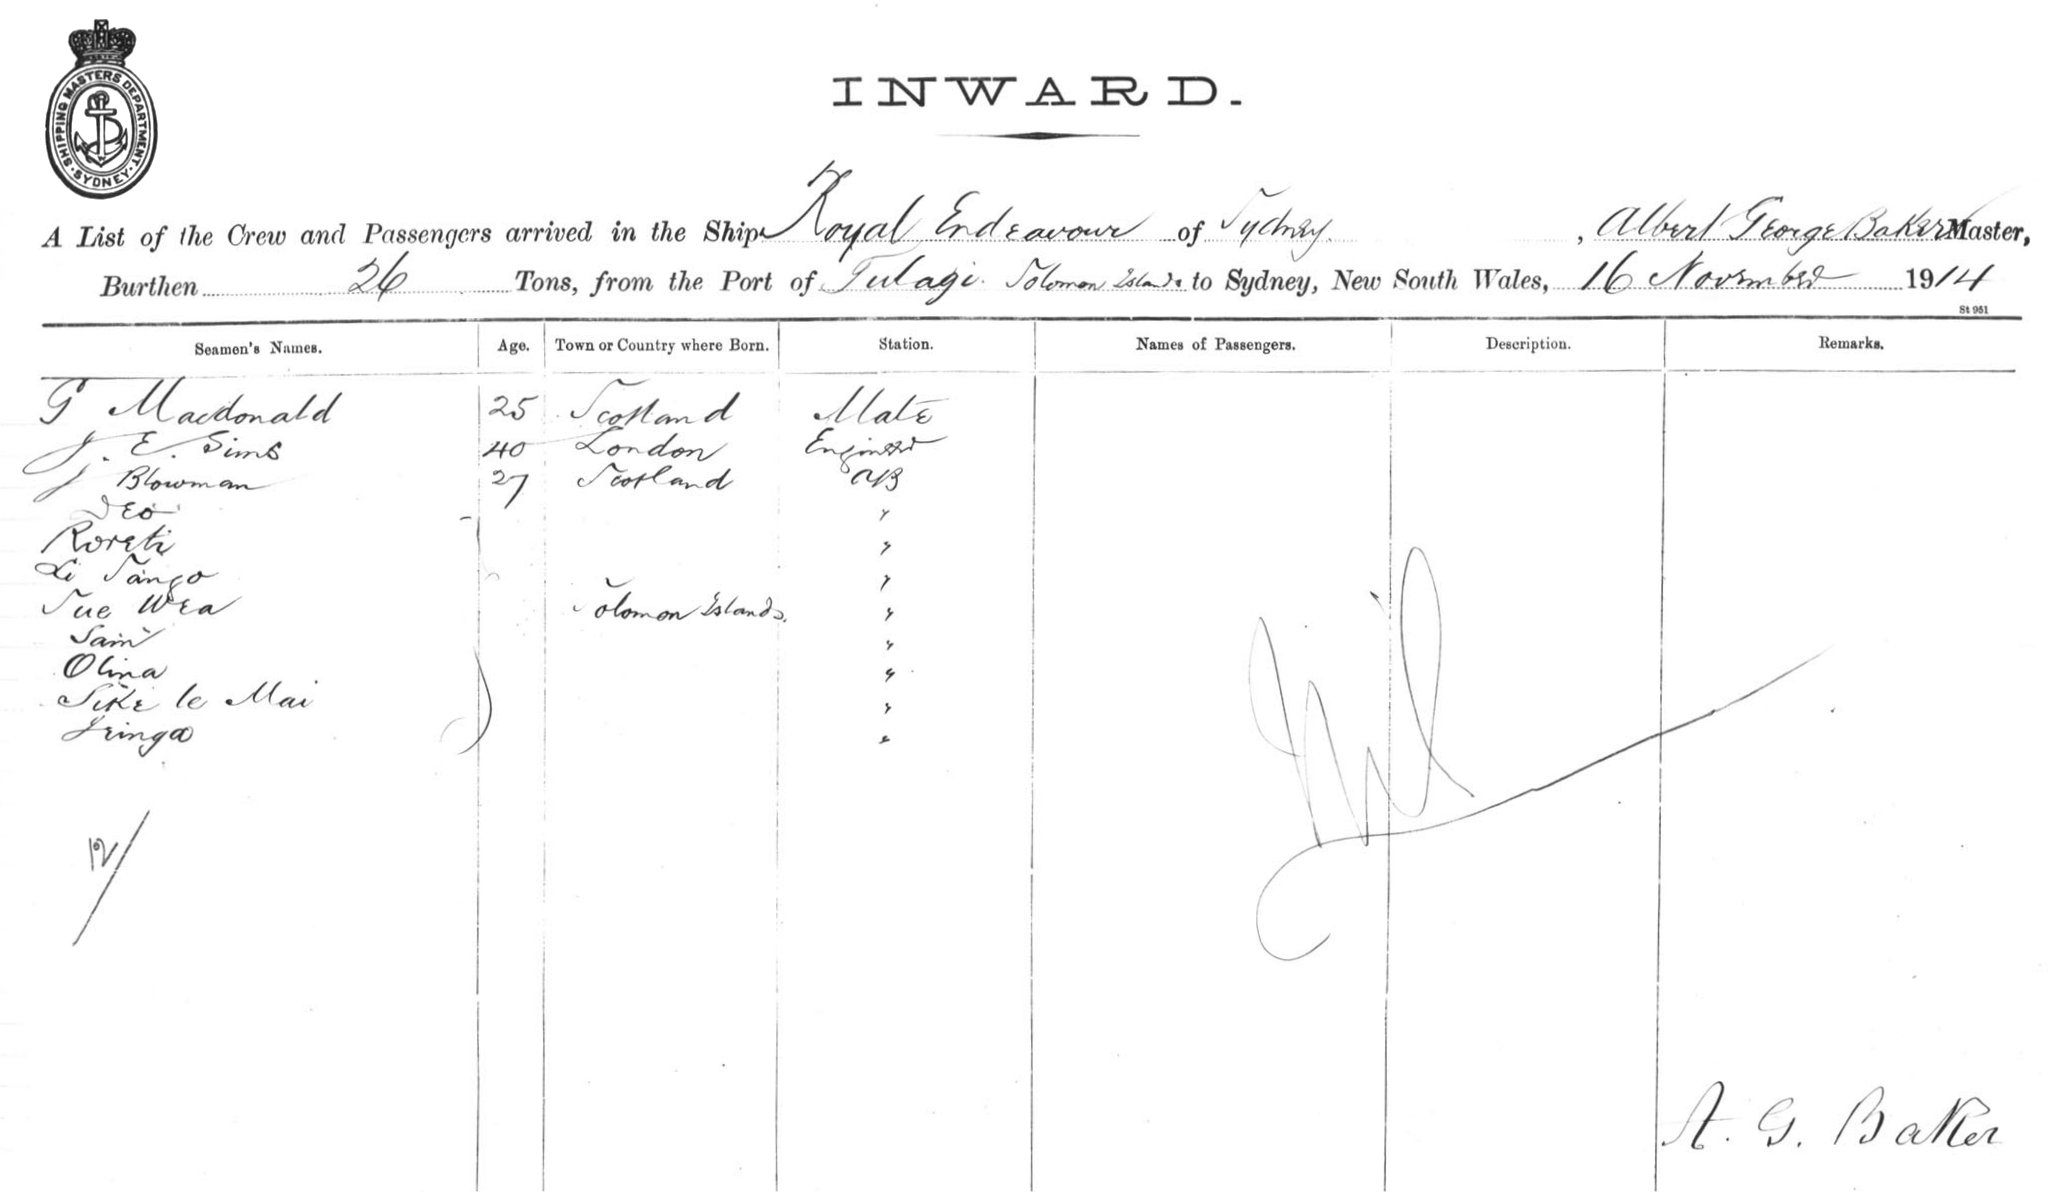 SHIPPING MASTERS DEPARTMENT
SYDNEY
INWARD.
A List of the Crew and Passengers arrived in the Ship Royal Endeavour of Sydney, Albert George Baker Master,
Burthen 26 Tons, from the Port of Tulagi. Solomon Islands to Sydney, New South Wales, 16 November 1914
St 951
Seamen's Names. Age. Town or Country where Born. Station. Names of Passengers. Description. Remarks.
G Macdonald 25 Scotland Mate
J. E. Sims 40 London Engineer
J Blowman 27 Scotland AB
Roreti "
Li Tango "
Sue Wea Solomon Islands. "
Sam "
Olina "
Sike le Mai "
Nil
12/
A. G. Baker